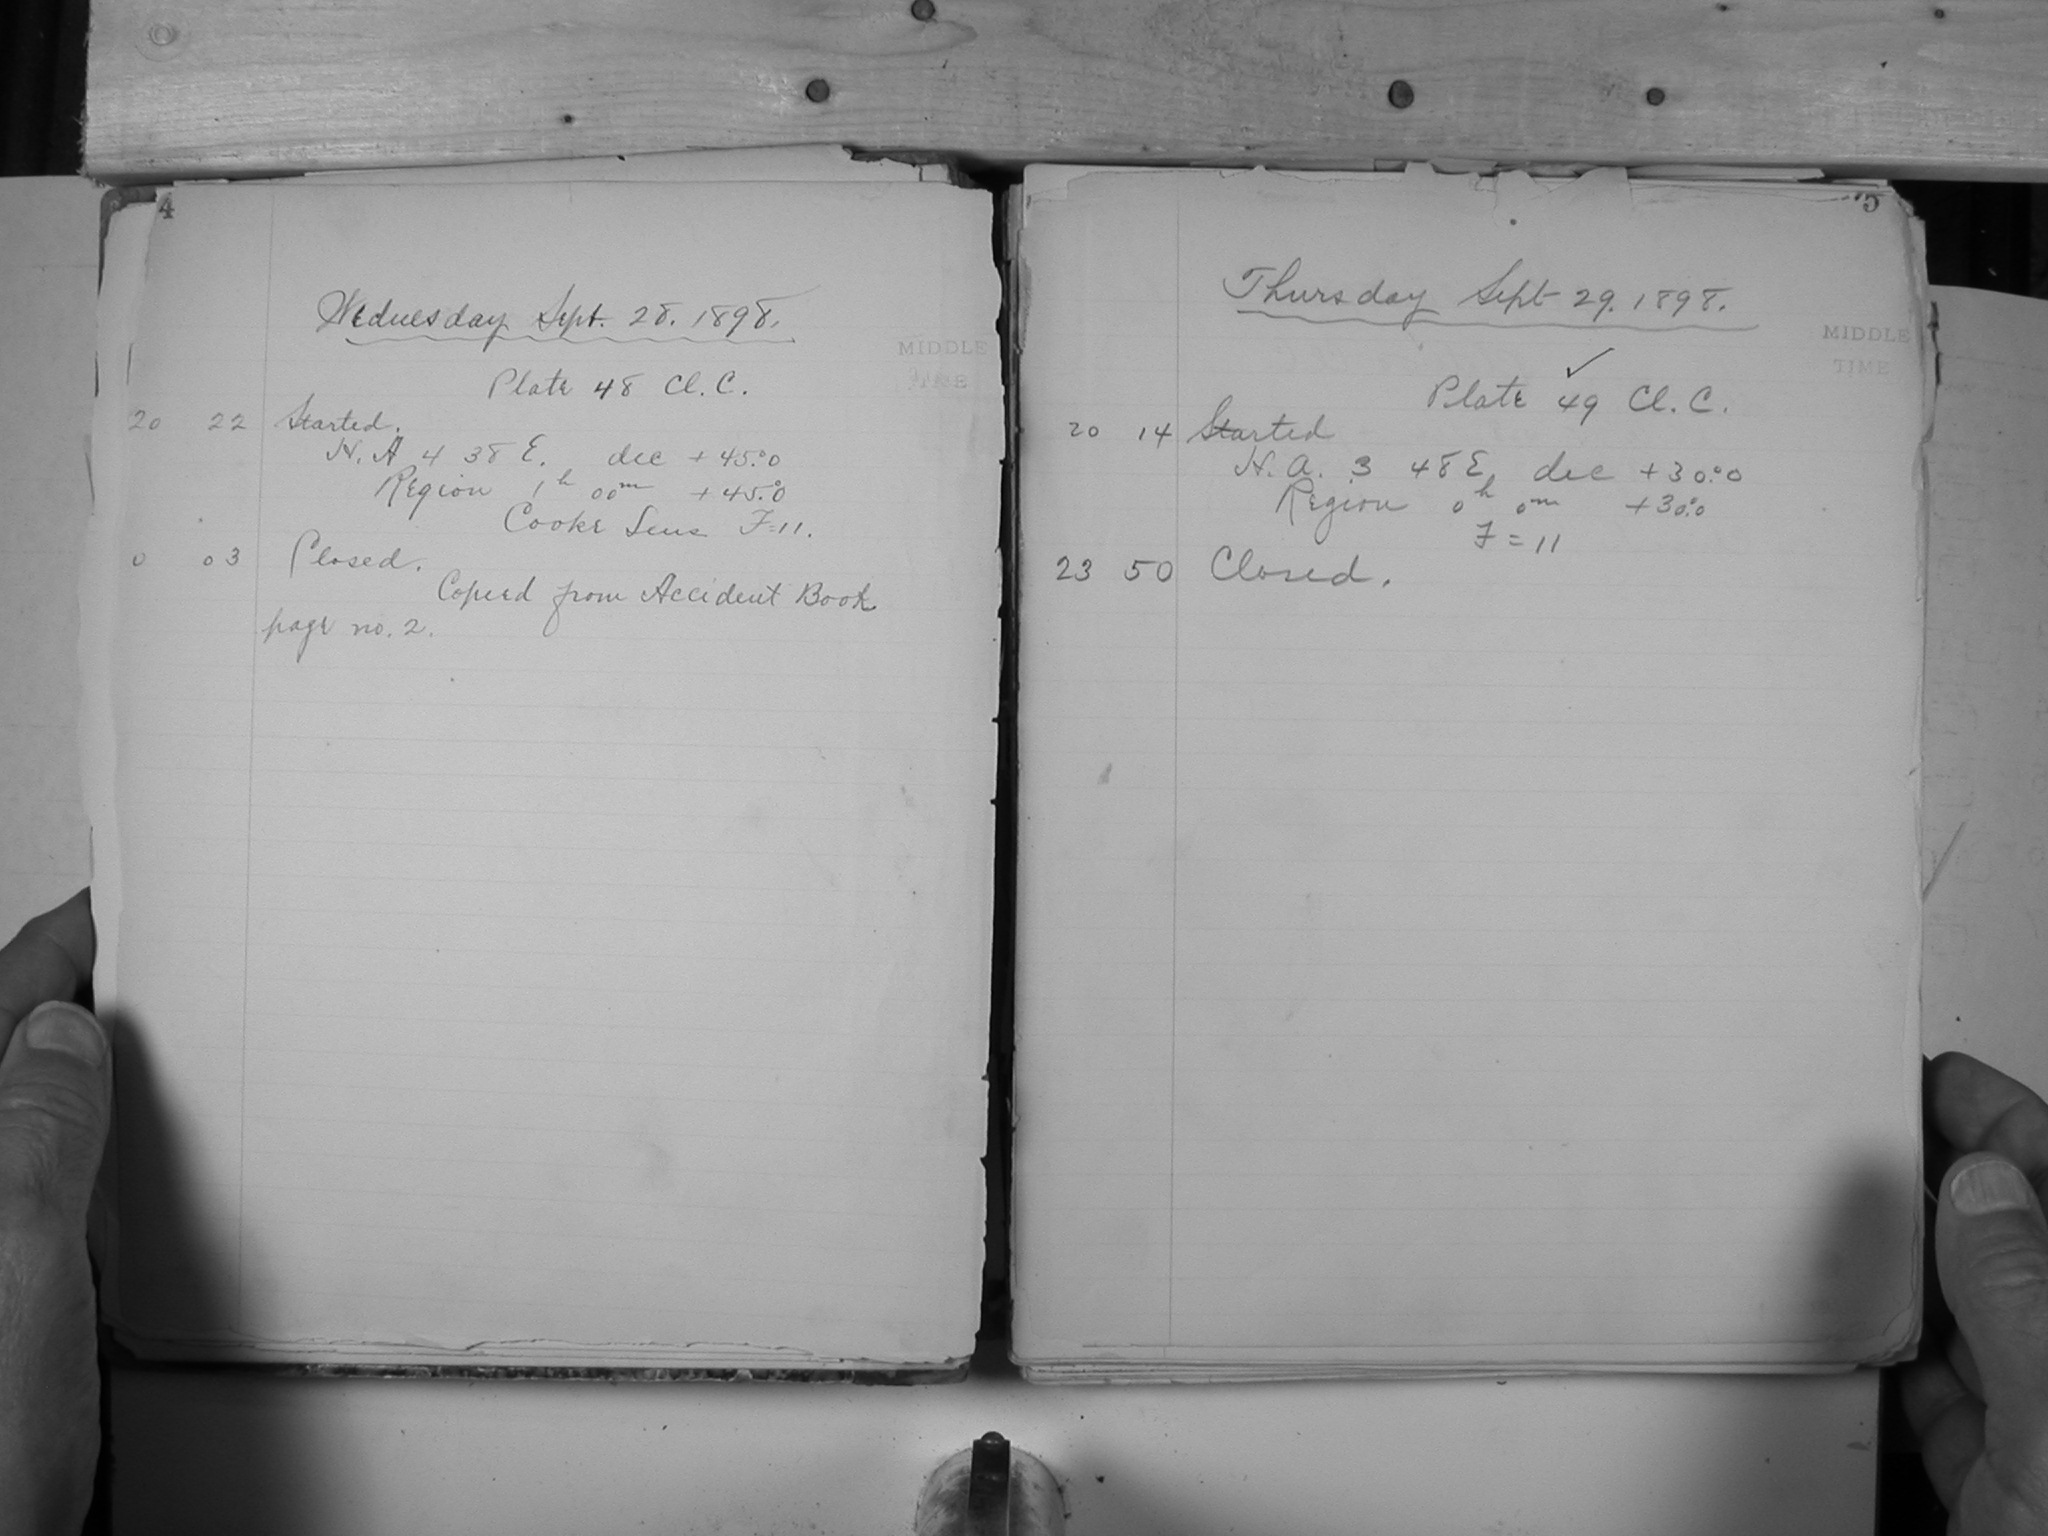 4
Wednesday Sept. 28. 1898.
MIDDLE
TIME
Plate 48 Cl. C.
20 22 Started.
H. A 4 38 E, dec +45.°0
Region 1h 00m +45.°0
Cooke Lens F=11.
0 03 Closed.
Copied from Accident Book
page no. 2.
5
Thursday Sept 29. 1898.
MIDDLE
TIME
✓
Plate 49 Cl. C.
20 14 Started
H. A. 3 48 E, dec +30.°0
Region 0h 0m +30.°0
F = 11
23 50 Closed.